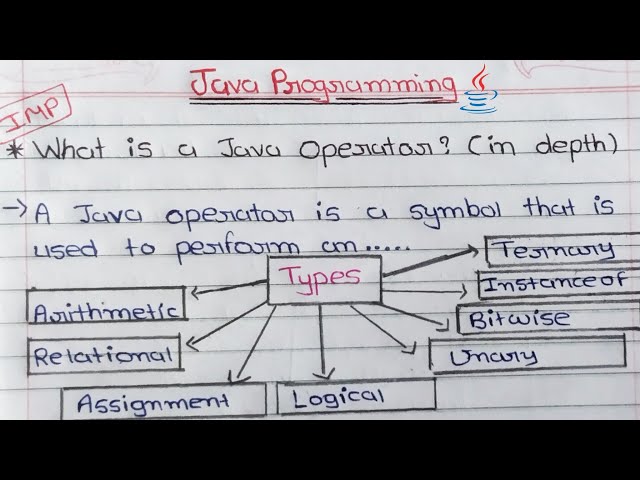 Java Programming
IMP
* What is a Java Operator? (in depth)
→ A Java operator is a symbol that is
used to perform an.....
Types
Ternary
Instanceof
Bitwise
Unary
Logical
Assignment
Relational
Arithmetic